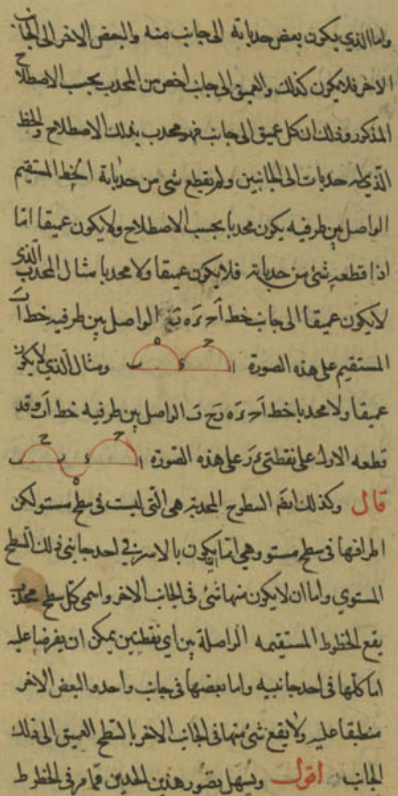 واما الذي يكون بعض حدباته الى جانب منه والبعض الاخر الى الجانب
الاخر فلا يكون كذلك والعميق الى جانب اخص من المحدب بحسب الاصطلاح
المذكور وذلك ان كل عميق الى جانب فهو محدب بذلك الاصطلاح والخط
الذي له حدبات الى الجانبين ولم يقطع شئ من حدباته الخط المستقيم
الواصل بين طرفيه يكون محدبا بحسب الاصطلاح ولا يكون عميقا اما
اذا قطعه شئ من حدباته فلا يكون عميقا ولا محدبا مثال المحدب الذي
لا يكون عميقا الى جانب خط الواصل بين طرفيه خط اب
المستقيم على هذه الصورة ا د ب ح ه ومثال الذي لا يكون
عميقا ولا محدبا خط الواصل بين طرفيه خط وقد
قطعه الاول على نقطتي على هذه الصورة ا
قال وكذلك ايضا السطوح المحدبة هي التي ليست في سطح مستو لكن
اطرافها في سطح مستو وهي اما يكون بالاسر في احد جانبي ذلك السطح
المستوي واما ان لا يكون منها شئ في الجانب الاخر واسمي كل سطح محدب
يقع الخطوط المستقيمه الواصلة بين اي نقطتين يمكن ان يفرضا عليه
اما كلها في احد جانبيه واما بعضها في جانب واحد والبعض الاخر
منطبقا عليه ولا يقع شئ منها في الجانب الاخر بالسطح العميق الى ذلك
الجانب اقول ويسهل تصور هذين الحدين مما مر في الخطوط